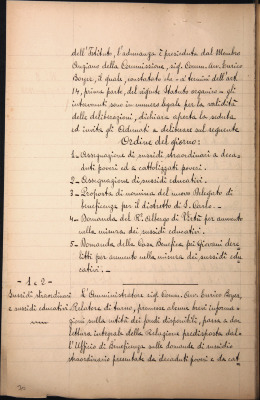 dell'Istituto, l'adunanza è presieduta dal Membro
Anziano della Commissione, sig. Comm. Avv. Enrico
Boyer, il quale, constatato che - ai termini dell'art.
14, prima parte, del vigente Statuto organico - gli
intervenuti sono in numero legale per la validità
delle deliberazioni, dichiara aperta la seduta
ed invita gli Adunati a deliberare sul seguente
Ordine del giorno:
1- Assegnazione di sussidi straordinari a deca-
duti poveri ed a cattolizzati poveri.
2- Assegnazione di sussidi educativi.
3- Proposta di nomina del nuovo Delegato di
beneficenza per il distretto di S. Carlo.
4- Domanda del R. Albergo di Virtù per aumento
nella misura dei sussidi educativi.
5- Domanda della Casa Benefica pei Giovani dere-
litti per aumento nella misura dei sussidi edu-
cativi.
- 1 e 2 -
Sussidi straordinari
e sussidi educativi
L'Amministratore sig. Comm. Avv. Enrico Boyer,
Relatore di turno, premesse alcune brevi informa-
zioni sulla entità dei fondi disponibili, passa a dar
lettura integrale della Relazione predisposta dal-
l'Ufficio di Beneficenza sulle domande di sussidio
straordinario presentate da decaduti poveri e da cat-